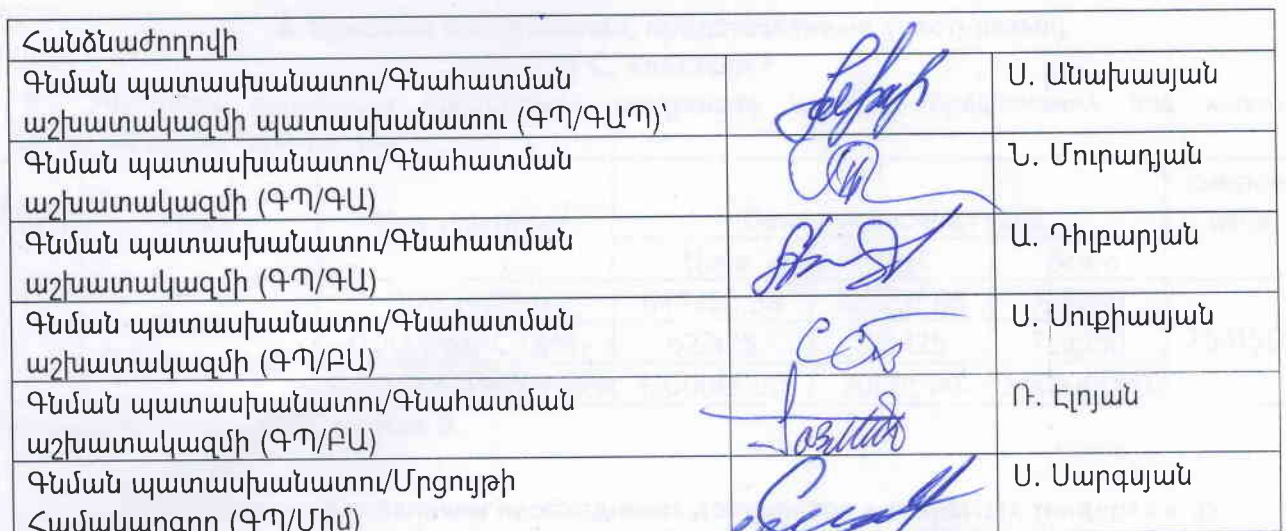 Հանձնաժողովի
Գնման պատասխանատու/Գնահատման
աշխատակազմի պատասխանատու (ԳՊ/ԳԱՊ)
Ս. Անախասյան
Գնման պատասխանատու/Գնահատման
աշխատակազմի (ԳՊ/ԳԱ)
Ն. Մուրադյան
Գնման պատասխանատու/Գնահատման
աշխատակազմի (ԳՊ/ԳԱ)
Ա. Դիլբարյան
Գնման պատասխանատու/Գնահատման
աշխատակազմի (ԳՊ/ԲԱ)
Ս. Սուքիասյան
Գնման պատասխանատու/Գնահատման
աշխատակազմի (ԳՊ/ԲԱ)
Ռ. Էլոյան
Գնման պատասխանատու/Մրցույթի
Համակարգող (ԳՊ/Միմ)
Ս. Սարգսյան